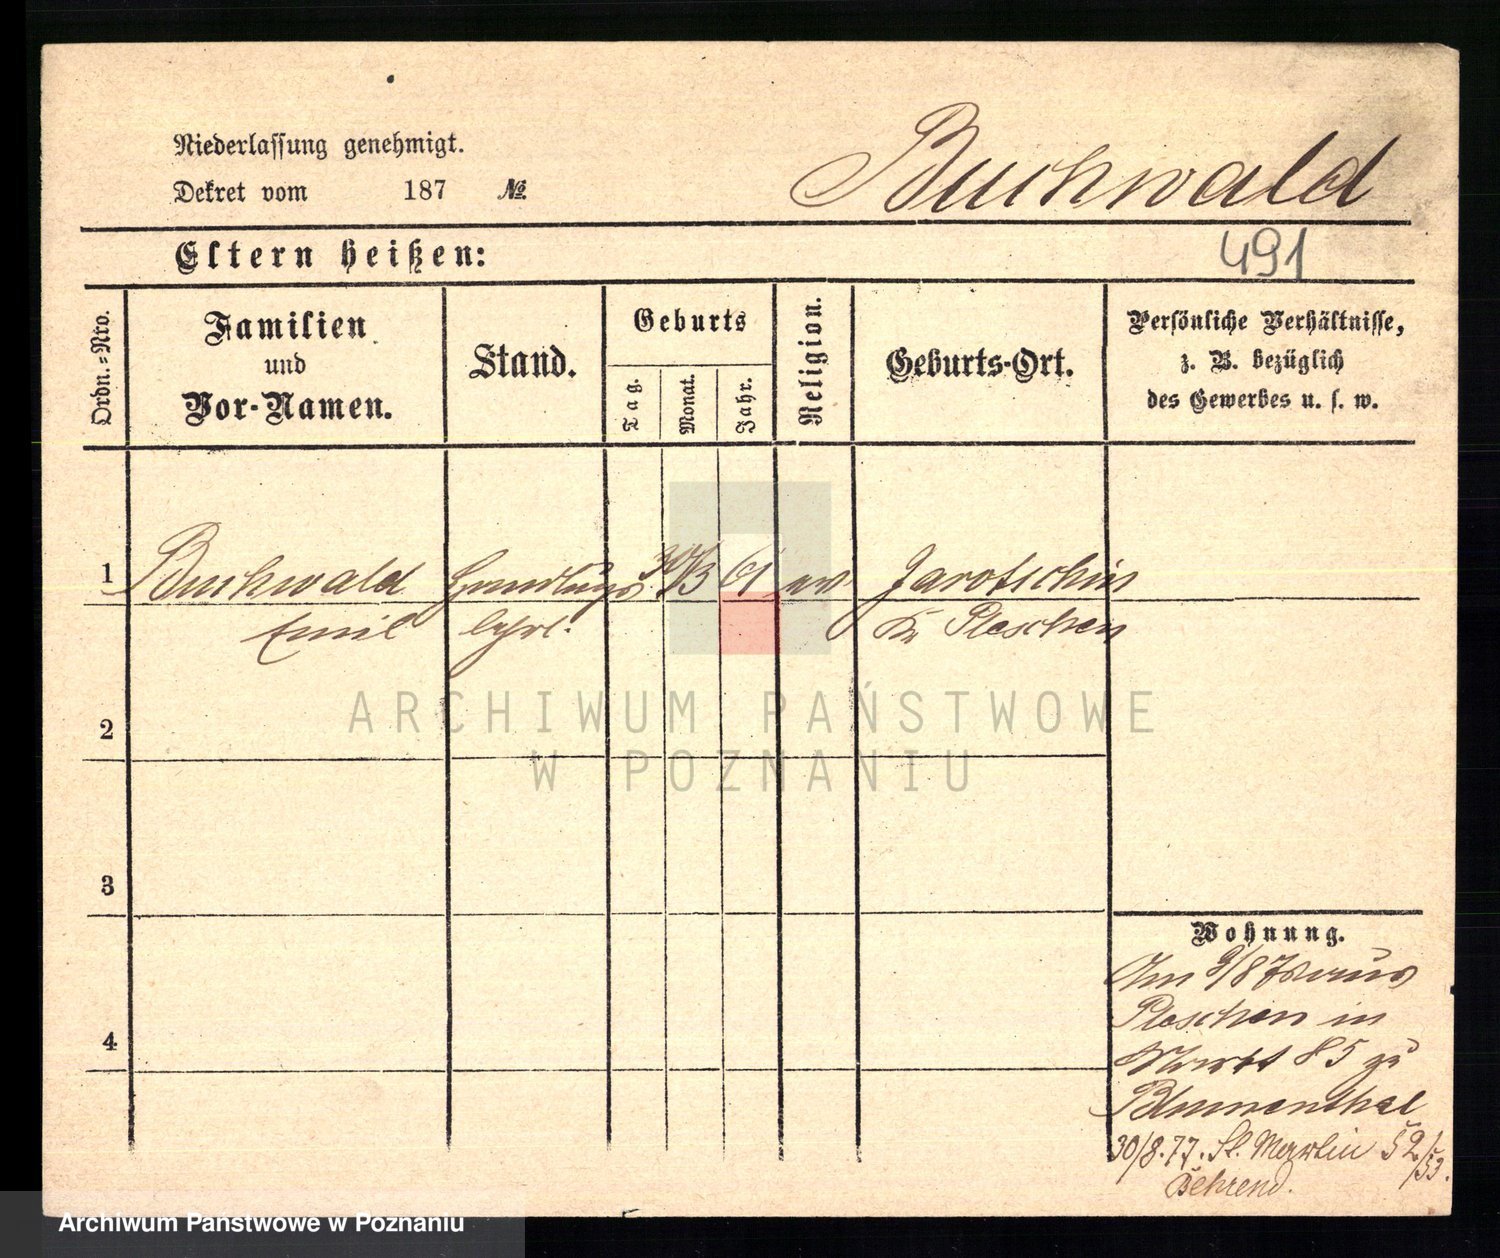 Niederlassung genehmigt.
Dekret vom 187 №.
Buchwald
491
Eltern heißen:
Ordn.-Nro.
Familien
und
Vor-Namen.
Stand.
Geburts
Tag.
Monat.
Jahr.
Religion.
Geburts-Ort.
Persönliche Verhältnisse,
z. B. bezüglich
des Gewerbes u. s. w.
1 Buchwald Handlungs 30/3 61 ev Jarotschin
Emil lehrl. Kr Pleschen
2
3
4
Wohnung.
Am 9/8 aus
Pleschen in
Markt 85 zu
Blumenthal
30/8.77. St. Martin 52/53.
Behrend.
ARCHIWUM PAŃSTWOWE
W POZNANIU
Archiwum Państwowe w Poznaniu